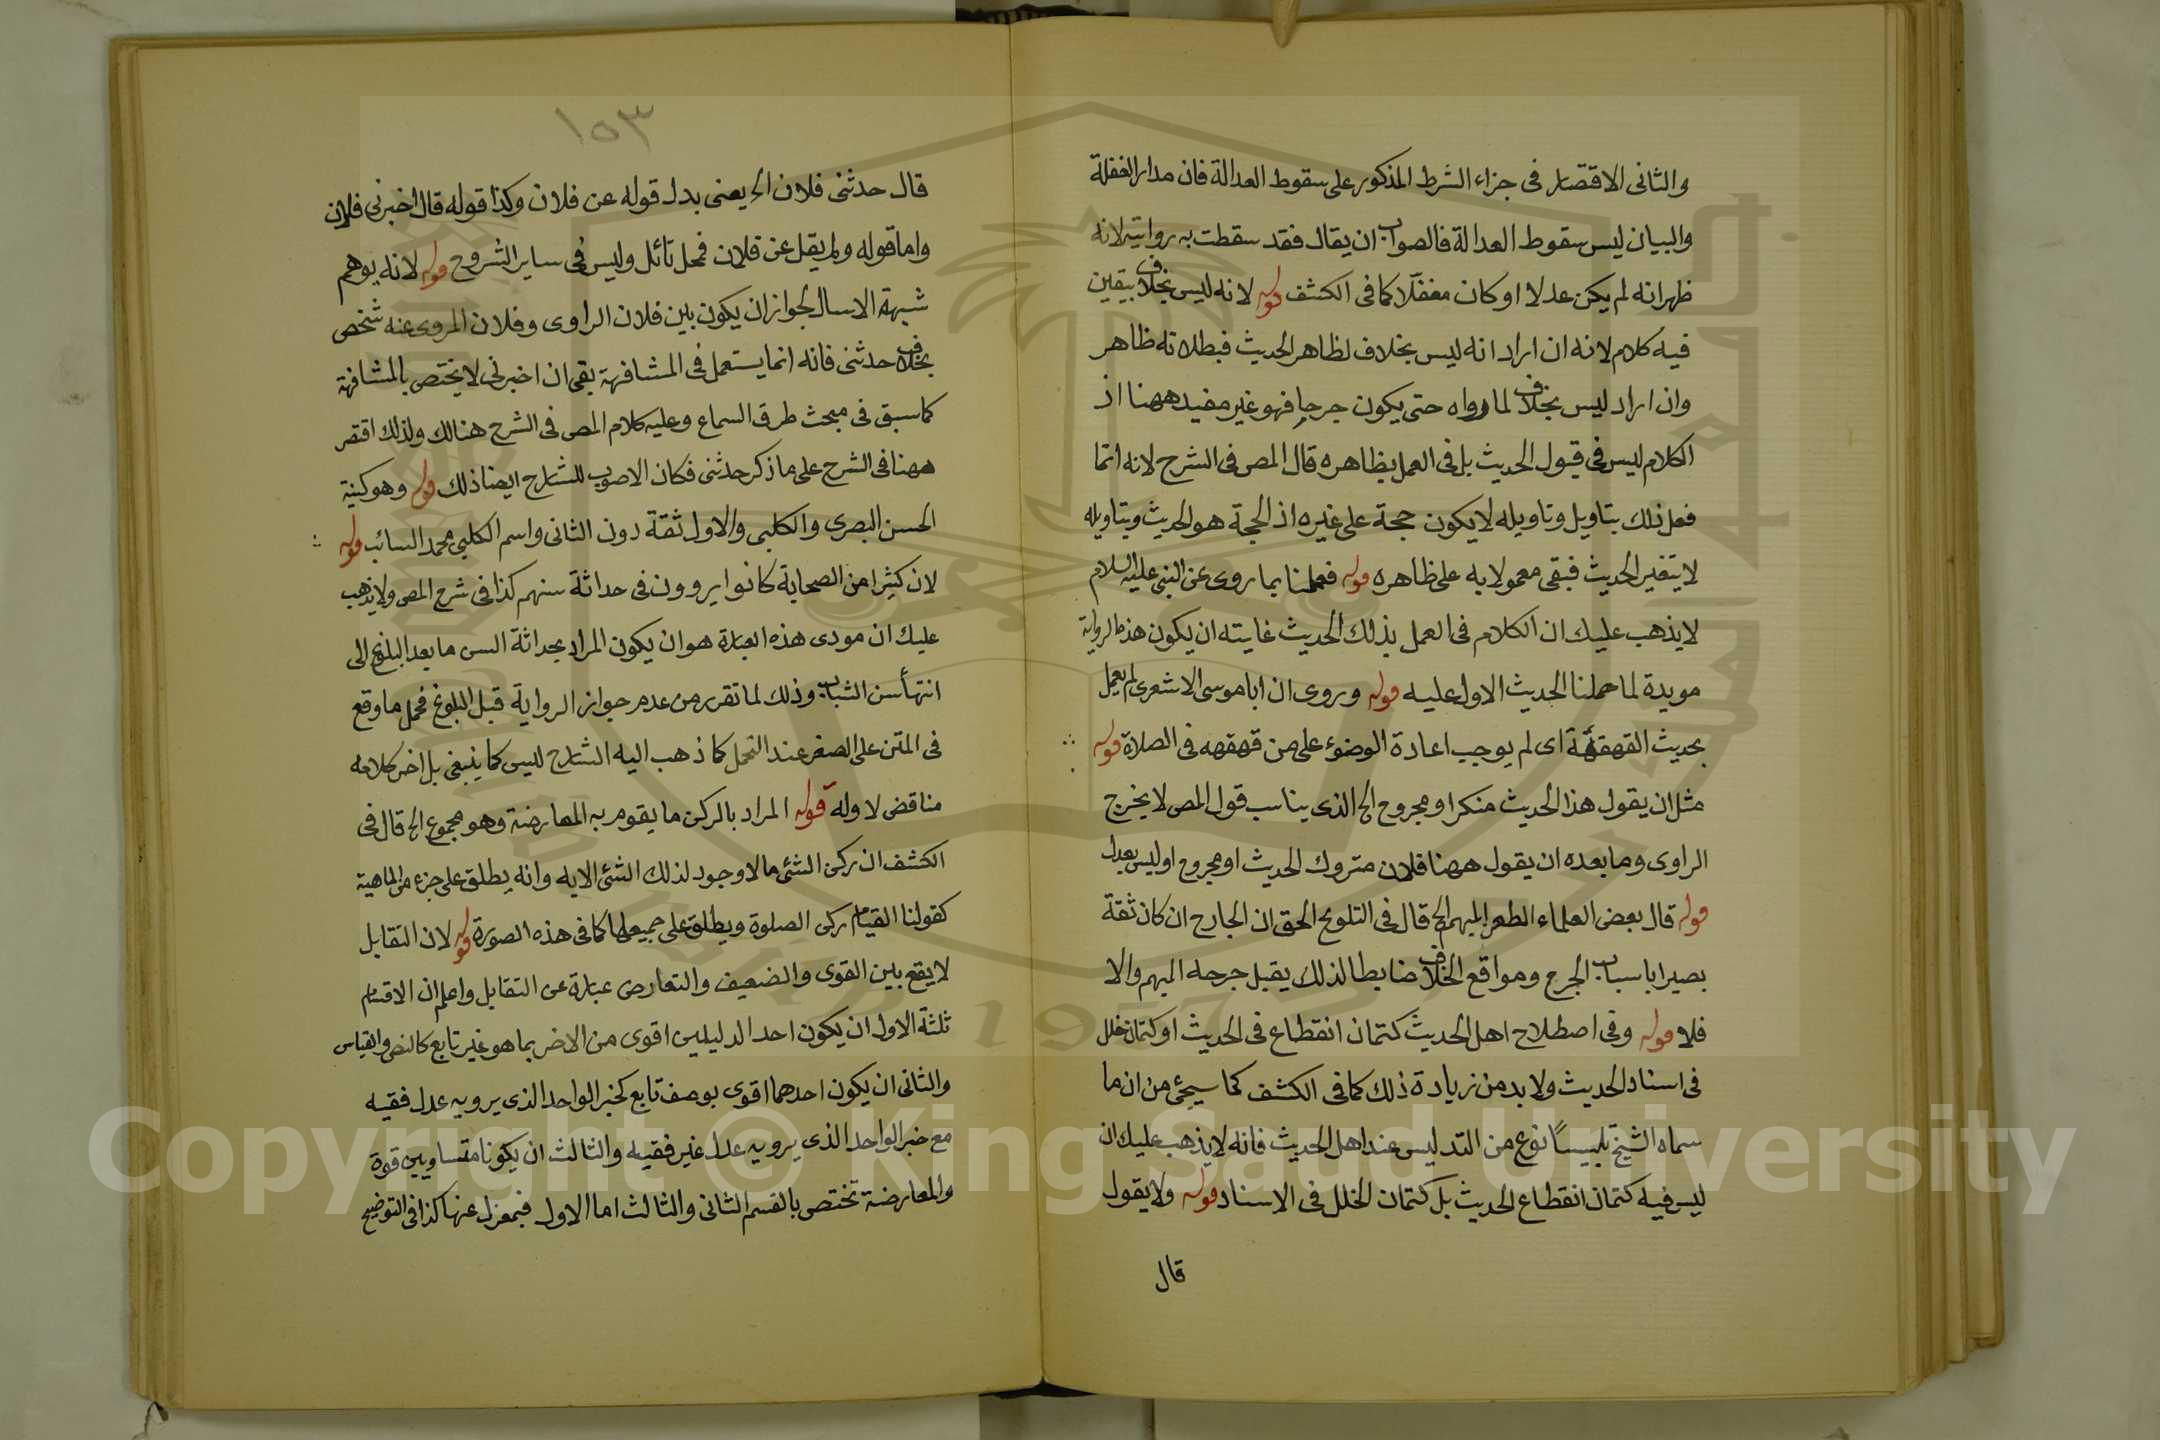 والثانى الاقتصار فى جزاء الشرط المذكور على سقوط العدالة فان مدار الغفلة
والبيان ليس سقوط العدالة فالصواب ان يقال فقد سقطت به روايته لانه
ظهر انه لم يكن عدلا او كان مغفلا كما فى الكشف قوله لانه ليس بخلاف بيقين
فيه كلام لانه ان اراد انه ليس بخلاف لظاهر الحديث فبطلانه ظاهر
وان اراد ليس بخلاف لما رواه حتى يكون جرحا فهو غير مفيد ههنا اذ
الكلام ليس فى قبول الحديث بل فى العمل بظاهره قال المص فى الشرح لانه انما
فعل ذلك بتاويل وتاويله لا يكون حجة على غيره اذ الحجة هو الحديث وبتاويله
لا يتغير الحديث فبقى معمولا به على ظاهره قوله فعملنا بما روى عن النبى عليه السلام
لا يذهب عليك ان الكلام فى العمل بذلك الحديث غايته ان يكون هذه الرواية
مويدة لما حملنا الحديث الاول عليه قوله وروى ان ابا موسى الاشعرى لم يعمل
بحديث القهقهة اى لم يوجب اعادة الوضوء على من قهقهه فى الصلاة قوله
مثل ان يقول هذا الحديث منكر او مجروح الخ الذى يناسب قول المص لا يخرج
الراوى وما بعده ان يقول ههنا فلان متروك الحديث او مجروح او ليس بعدل
قوله قال بعض العلماء الطعن المبهم الخ قال فى التلويح الحق ان الجارح ان كان ثقة
بصيرا باسباب الجرح ومواقع الخلاف ضابطا لذلك يقبل جرحه المبهم والا
فلا قوله وفى اصطلاح اهل الحديث كتمان انقطاع فى الحديث او كتمان خلل
فى اسناد الحديث ولا بد من زيادة ذلك كما فى الكشف كما سيجئ من ان ما
سماه الشيخ تلبيسًا نوع من التدليس عند اهل الحديث فانه لا يذهب عليك ان
ليس فيه كتمان انقطاع الحديث بل كتمان الخلل فى الاسناد قوله ولا يقول
قال
١٥٣
قال حدثنى فلان الخ يعنى بدل قوله عن فلان وكذا قوله قال اخبرنى فلان
واما قوله ولم يقل عن فلان فمحل تائل وليس فى ساير الشروح قوله لانه يوهم
شبهة الارسال لجواز ان يكون بين فلان الراوى وفلان المروى عنه شخص
بخلاف حدثنى فانه انما يستعمل فى المشافهة بقى ان اخبرنى لا يختص بالمشافهة
كما سبق فى مبحث طرق السماع وعليه كلام المص فى الشرح هنالك ولذلك اقتصر
ههنا فى الشرح على ما ذكر حدثنى فكان الاصوب للشارح ايضا ذلك قوله وهو كنية
الحسن البصرى والكلبى والاول ثقة دون الثانى واسم الكلبى محمد السائب قوله
لان كثيرا من الصحابة كانوا يروون فى حداثة سنهم كذا فى شرح المص ولا يذهب
عليك ان مودى هذه العبارة هو ان يكون المراد بحداثة السن ما بعد البلوغ الى
انتهاء سن الشباب وذلك لما تقرر من عدم جواز الرواية قبل البلوغ فحمل ما وقع
فى المتن على الصغر عند التحمل كما ذهب اليه الشارح ليس كما ينبغى بل اخر كلامه
مناقض لاوله قوله المراد بالركن ما يقوم به المعارضة وهو مجموع الخ قال فى
الكشف ان ركن الشئ ما لا وجود لذلك الشئ الا به وانه يطلق على جزء من الماهية
كقولنا القيام ركن الصلوة ويطلق على جميعها كما فى هذه الصورة قوله لان التقابل
لا يقع بين القوى والضعيف والتعارض عبارة عن التقابل واعلم ان الاقسام
ثلثة الاول ان يكون احد الدليلين اقوى من الاخر بما هو غير تابع كالنص والقياس
والثانى ان يكون احدهما اقوى بوصف تابع كخبر الواحد الذى يرويه عدل فقيه
مع خبر الواحد الذى يرويه عدل غير فقيه والثالث ان يكونا متساويين قوة
والمعارضة تختص بالقسم الثانى والثالث اما الاول فبمعزل عنها كذا فى التوضيح
Copyright © King Saud University
1957